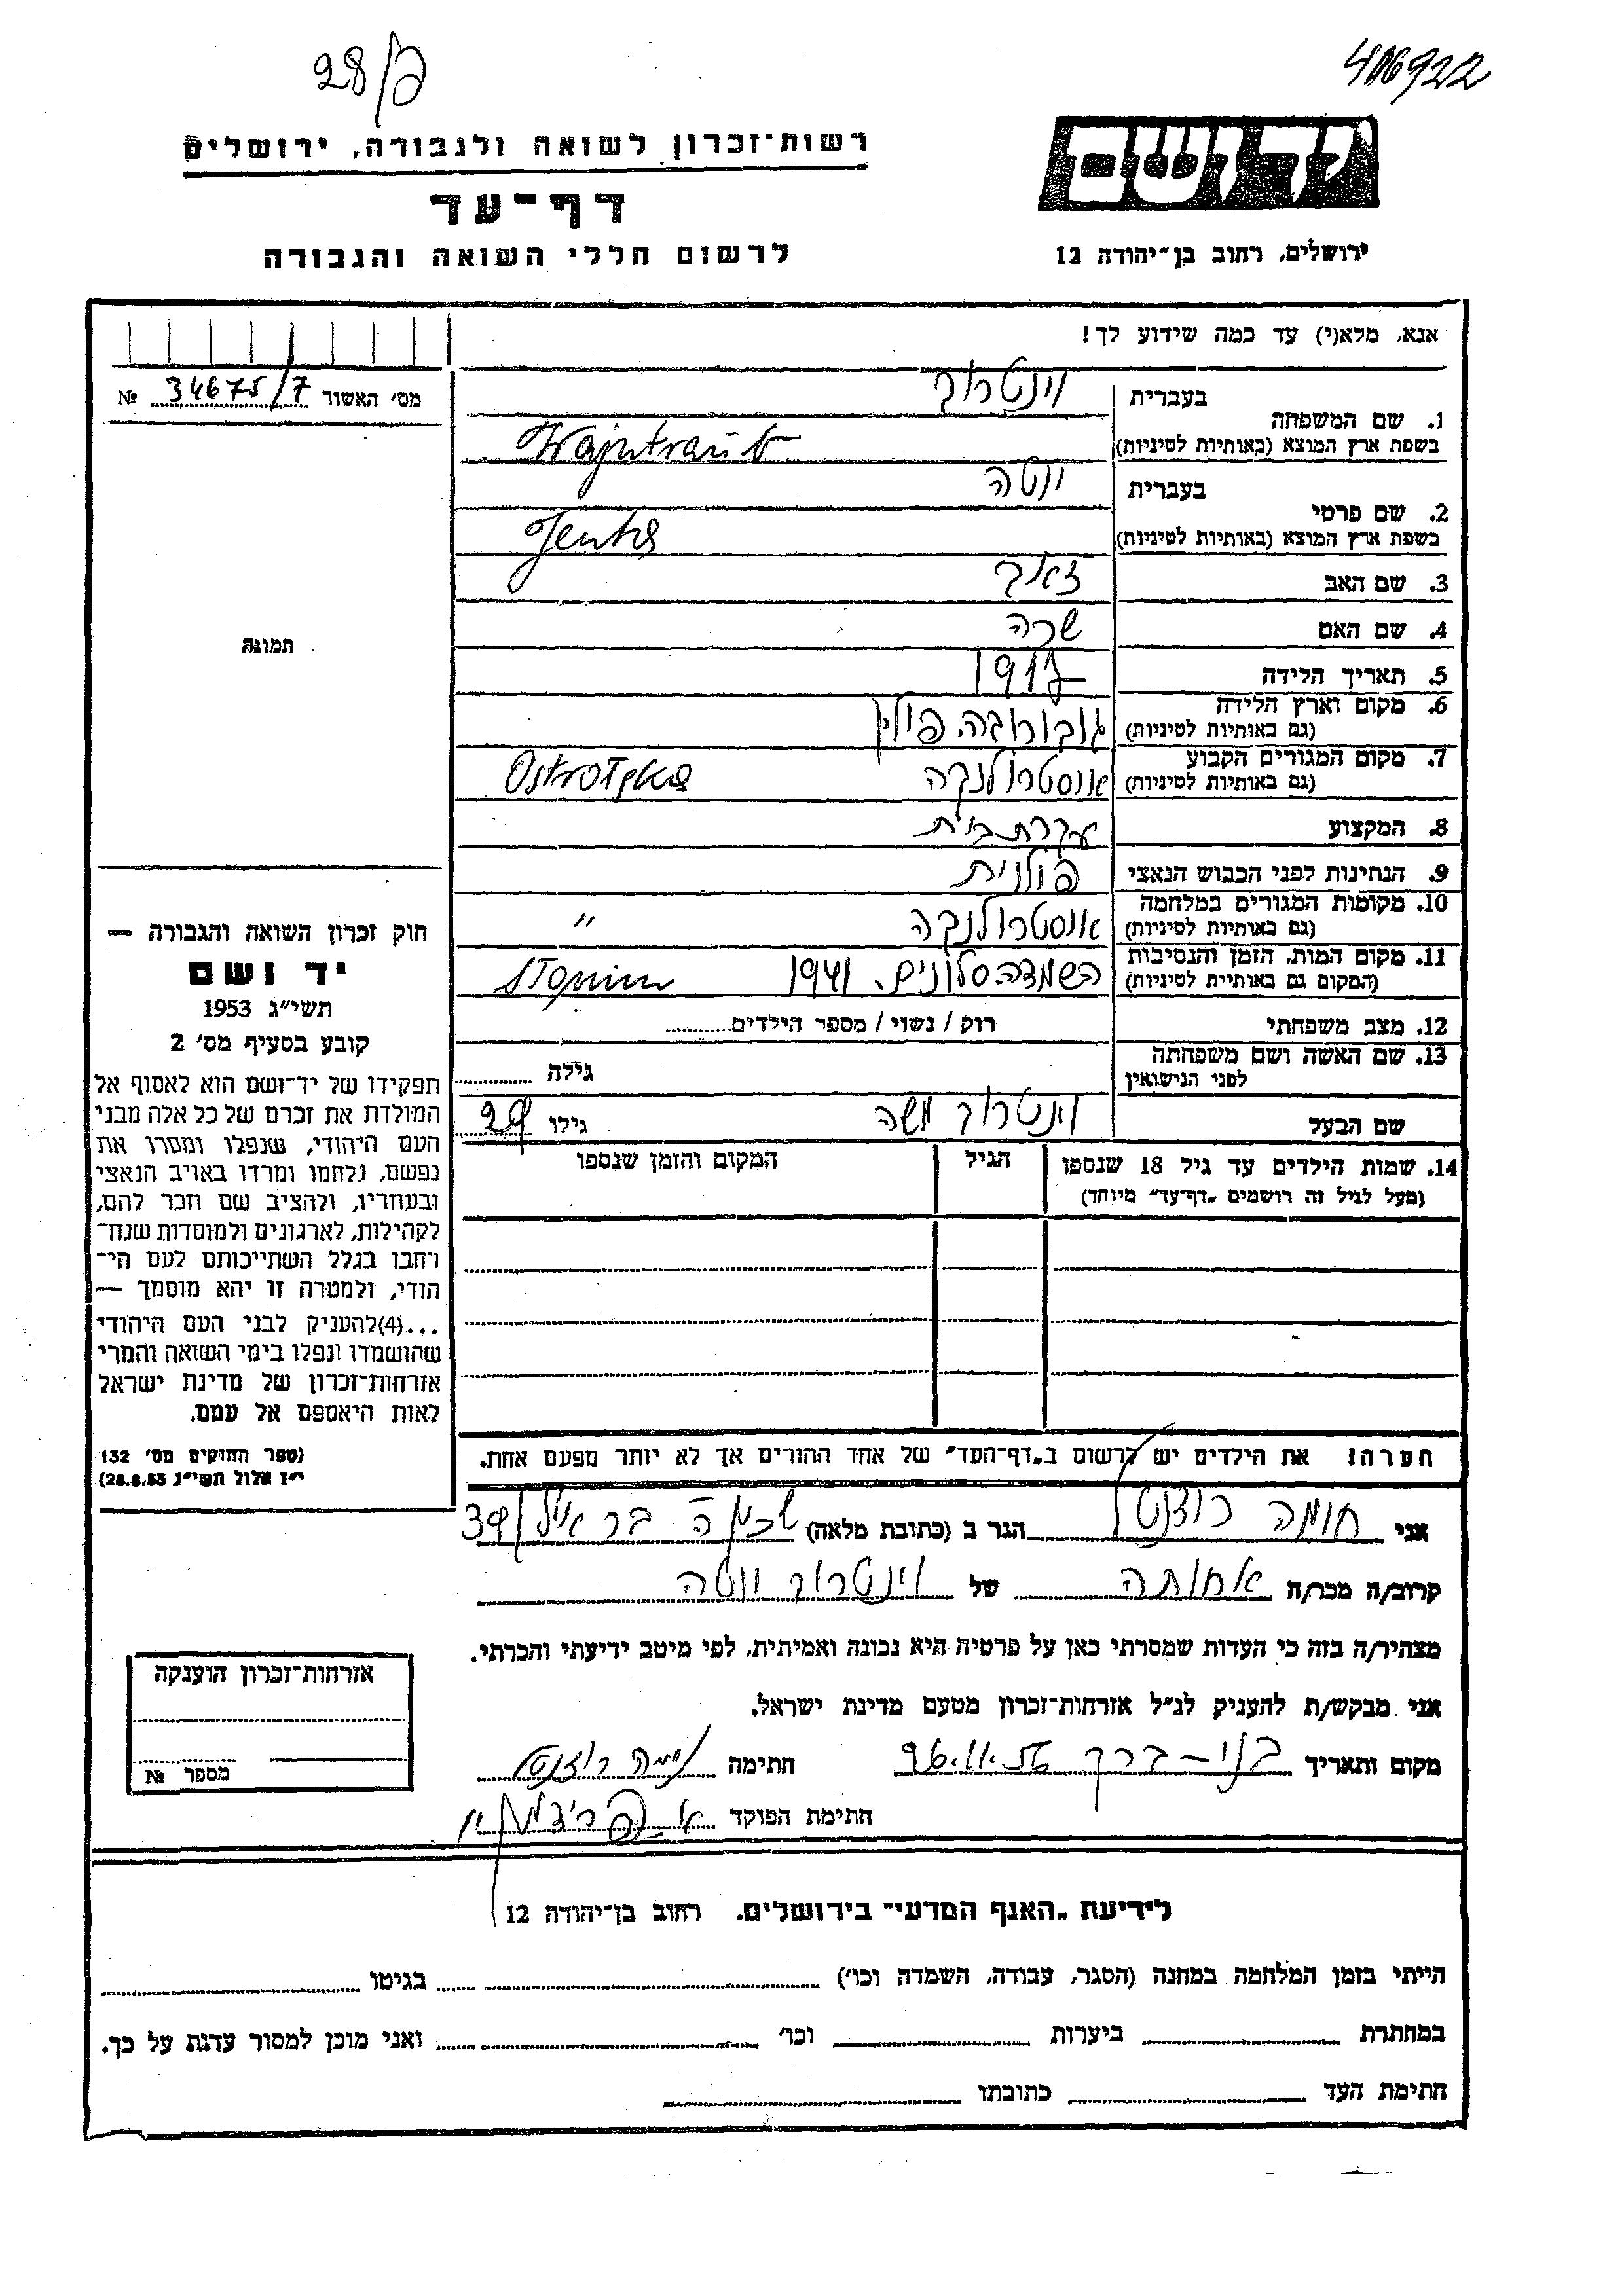 28/פ
406922
רשות־זכרון לשואה ולגבורה, ירושלים
דף־עד
לרשום חללי השואה והגבורה
יד ושם
ירושלים, רחוב בן־יהודה 12
אנא, מלא(י) עד כמה שידוע לך!
מס׳ האשור 34675/7 №
1. שם המשפחה
בעברית וינטרוב
בשפת ארץ המוצא (באותיות לטיניות) Wajntraub
2. שם פרטי
בעברית ינטה
בשפת ארץ המוצא (באותיות לטיניות) Jenta
3. שם האב זאב
4. שם האם שרה
5. תאריך הלידה 1917
6. מקום וארץ הלידה
(גם באותיות לטיניות) גובורובה. פולין
7. מקום המגורים הקבוע
(גם באותיות לטיניות) אוסטרולנקה Ostrołęka
8. המקצוע עקרת בית
9. הנתינות לפני הכבוש הנאצי פולנית
10. מקומות המגורים במלחמה
(גם באותיות לטיניות) אוסטרולנקה "
11. מקום המות, הזמן והנסיבות
(המקום גם באותיית לטיניות) השמדה. סלונים. 1941 Słonim
12. מצב משפחתי רוק / נשוי / מספר הילדים
13. שם האשה ושם משפחתה
לפני הנישואין גילה
שם הבעל וינטרוב משה גילו 29
14. שמות הילדים עד גיל 18 שנספו
(מעל לגיל זה רושמים „דף־עד״ מיוחד)
הגיל
המקום והזמן שנספו
הערה! את הילדים יש לרשום ב„דף־העד״ של אחד ההורים אך לא יותר מפעם אחת.
תמונה
חוק זכרון השואה והגבורה —
יד ושם
תשי״ג 1953
קובע בסעיף מס׳ 2
תפקידו של יד־ושם הוא לאסוף אל
המולדת את זכרם של כל אלה מבני
העם היהודי, שנפלו ומסרו את
נפשם, נלחמו ומרדו באויב הנאצי
ובעוזריו, ולהציב שם וזכר להם,
לקהילות, לארגונים ולמוסדות שנח־
רחבו בגלל השתייכותם לעם הי־
הודי, ולמטרה זו יהא מוסמך —
...(4)להעניק לבני העם היהודי
שהושמדו ונפלו בימי השואה והמרי
אזרחות־זכרון של מדינת ישראל
לאות היאספם אל עמם.
(ספר החוקים מס׳ 132
י״ז אלול תשי״ג 28.8.53)
אני הגר ב (כתובת מלאה)
קרוב/ה מכר/ה אחותה של וינטרוב ינטה
מצהיר/ה בזה כי העדות שמסרתי כאן על פרטיה היא נכונה ואמיתית, לפי מיטב ידיעתי והכרתי.
אני מבקש/ת להעניק לנ״ל אזרחות־זכרון מטעם מדינת ישראל.
מקום ותאריך בני-ברק חתימה
חתימת הפוקד
אזרחות־זכרון הוענקה
מספר №
לידיעת „האגף המדעי״ בירושלים. רחוב בן־יהודה 12
הייתי בזמן המלחמה במחנה (הסגר, עבודה, השמדה וכו׳) בגיטו
במחתרת ביערות וכו׳ ואני מוכן למסור עדות על כך.
חתימת העד כתובתו